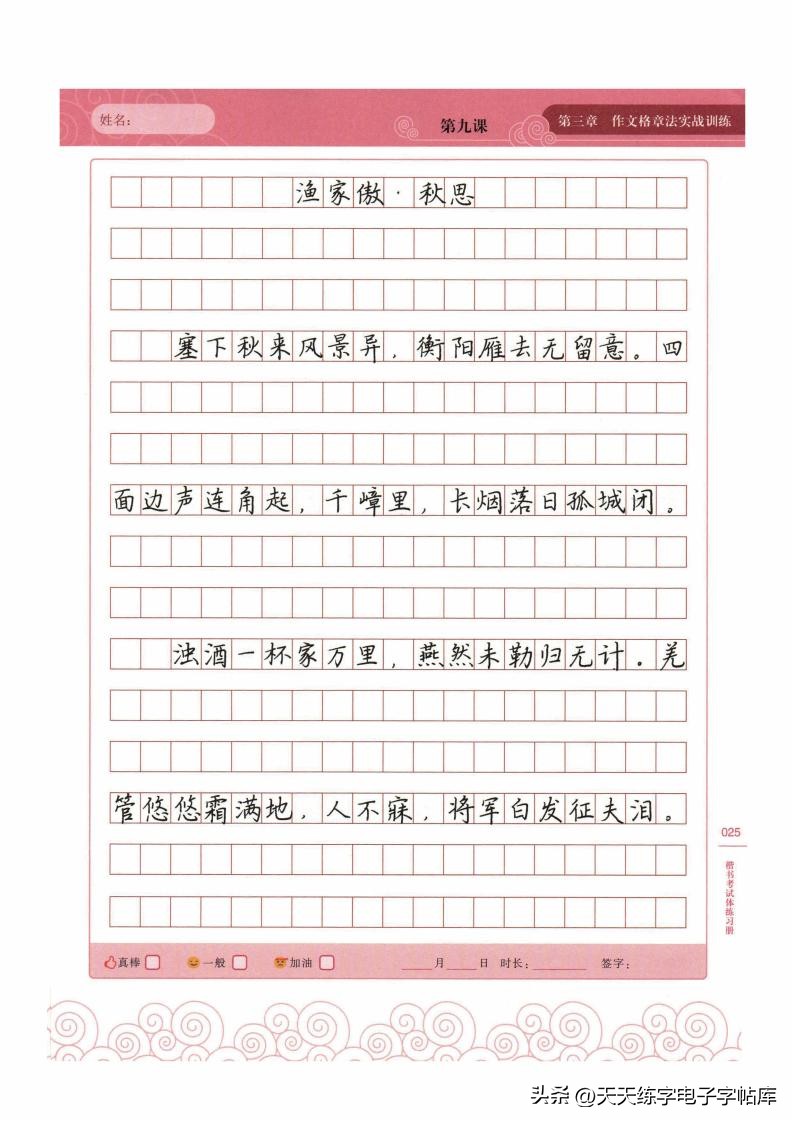 姓名：
第九课
第三章 作文格章法实战训练
渔家傲·秋思
塞下秋来风景异，衡阳雁去无留意。四
面边声连角起，千嶂里，长烟落日孤城闭。
浊酒一杯家万里，燕然未勒归无计。羌
管悠悠霜满地，人不寐，将军白发征夫泪。
025
楷书考试体练习册
真棒 一般 加油 ____月____日 时长：________ 签字：
头条 @天天练字电子字帖库